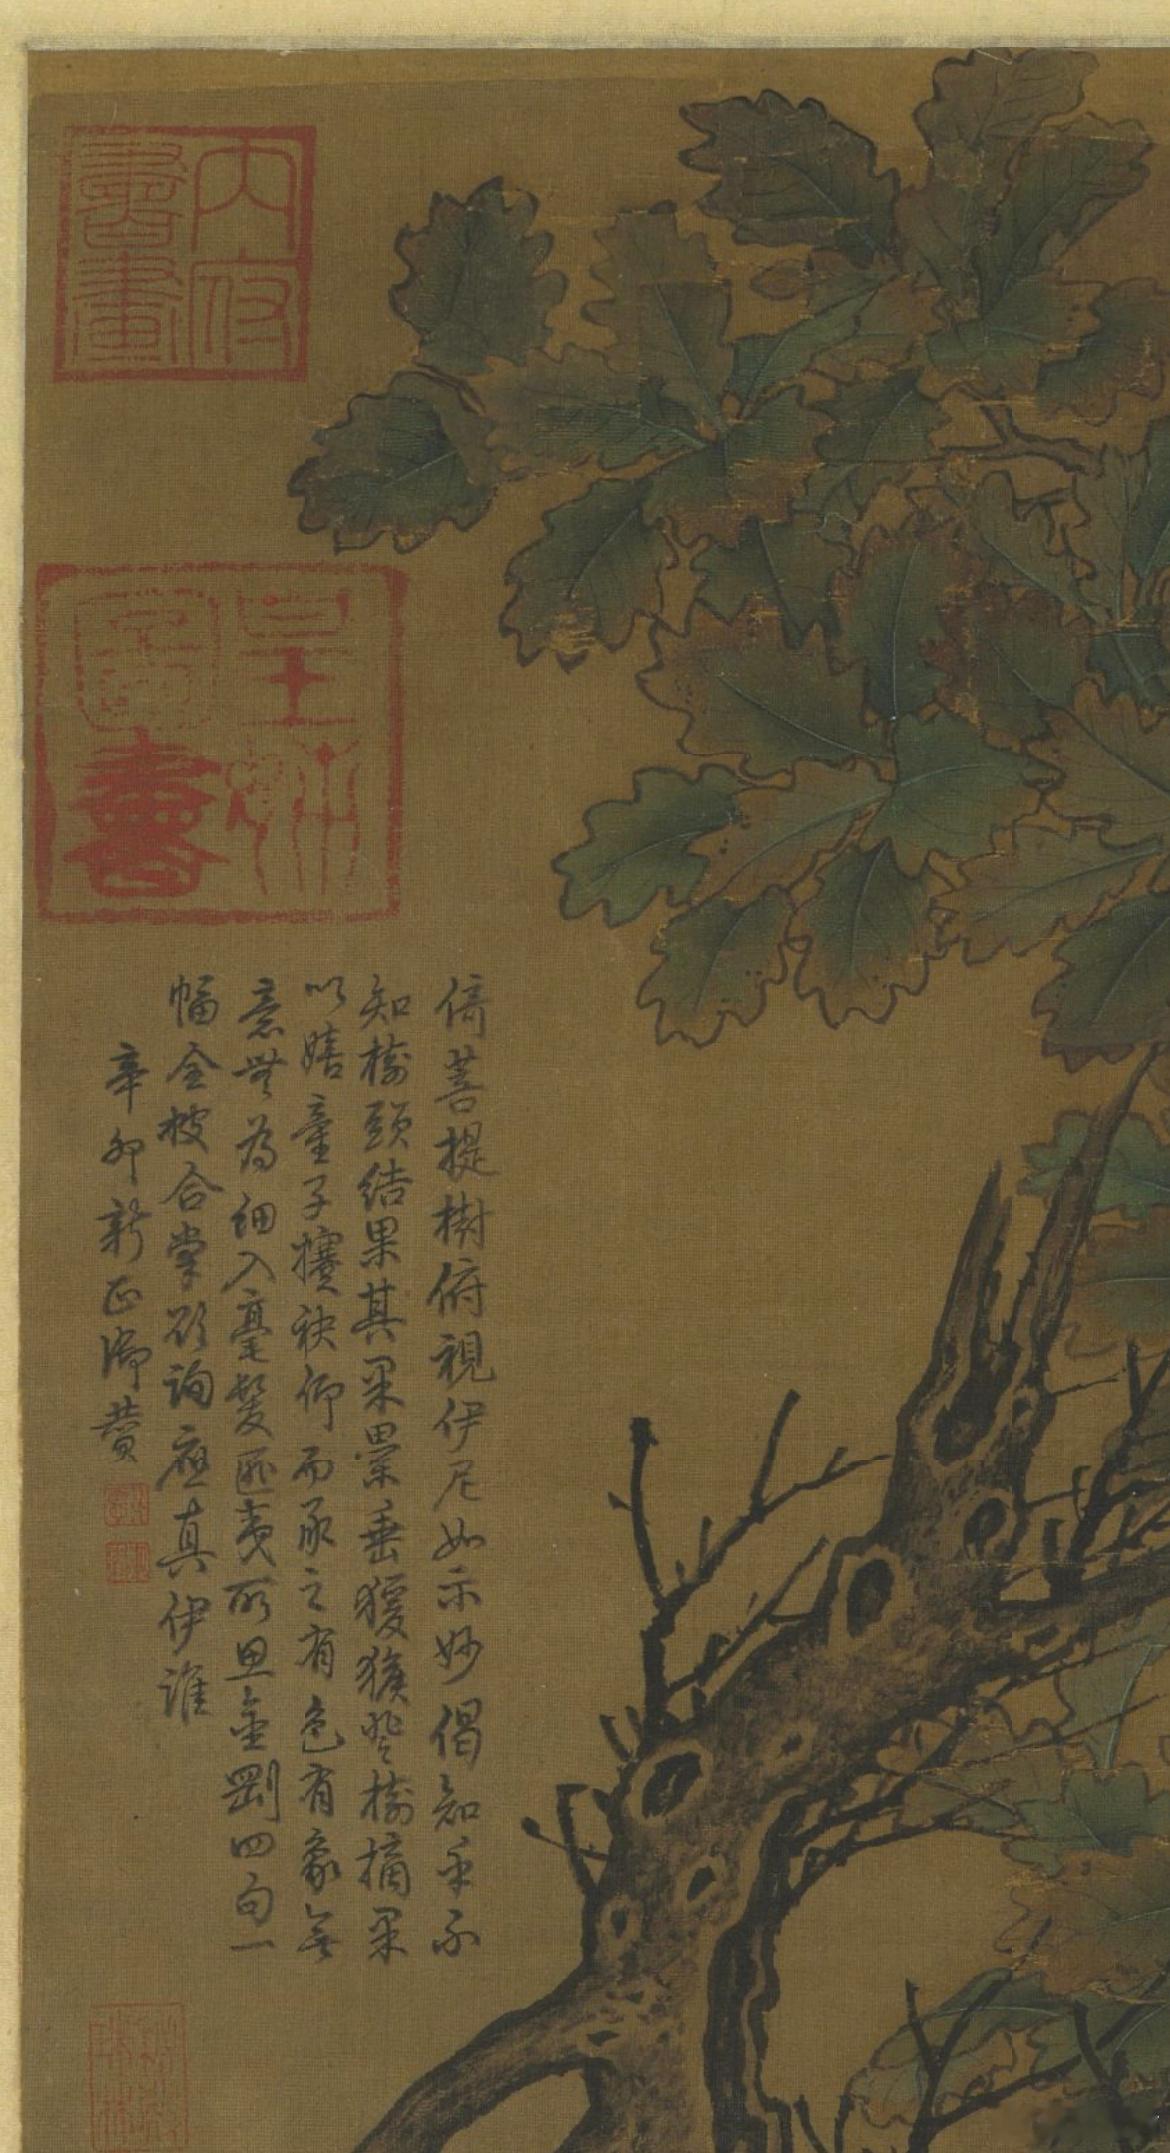 內府
書畫
皇姊
圖書
倚菩提樹俯視伊尼如示妙偈知乎不
知樹頭結果其果纍垂猨猴登樹摘果
以嬉童子攘袂仰而承之有色有象無
意無為細入毫髮匪夷所思金剛四句一
幅全披合掌欲詢應真伊誰
辛卯新正御贊